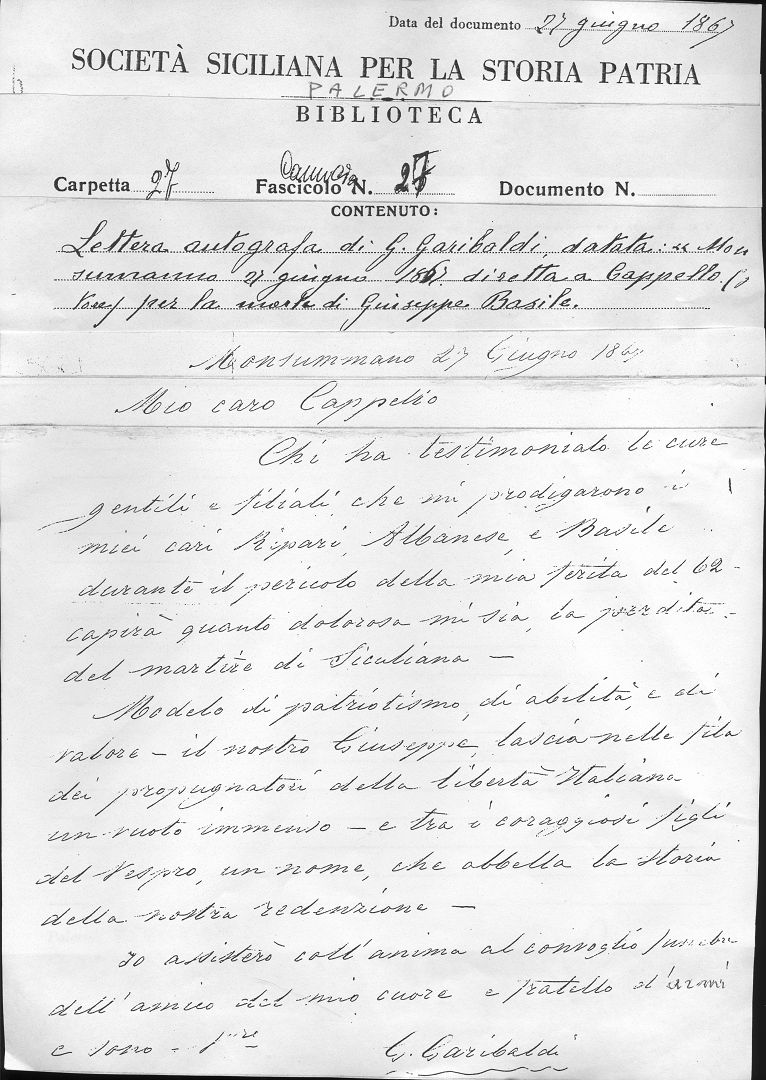 Data del documento 27 giugno 1867
SOCIETÀ SICILIANA PER LA STORIA PATRIA
PALERMO
BIBLIOTECA
Carpetta 27 Fascicolo N. 27 Documento N.
CONTENUTO:
Lettera autografa di G. Garibaldi, datata: « Mon
summanno 27 giugno 1867 diretta a Cappello
per la morte di Giuseppe Basile.
Monsummano 27 Giugno 1867
Mio caro Cappello
Chi ha testimoniato le cure
gentili e filiali, che mi prodigarono i
miei cari Ripari, Albanese, e Basile
durante il pericolo della mia ferita del 62 -
capirà quanto dolorosa mi sia, la perdita
del martire di Siculiana —
Modelo di patriotismo, di abilità, e di
valore — il nostro Giuseppe, lascia nelle fila
dei propugnatori della libertà Italiana
un vuoto immenso — e tra i coraggiosi figli
del Vespro, un nome, che abbella la storia
della nostra redenzione —
Io assisterò coll'anima al convoglio funebre
dell'amico del mio cuore e fratello d'armi
e sono -
G. Garibaldi